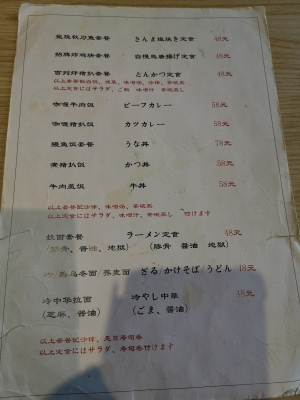 盐烧秋刀鱼套餐 さんま塩焼き定食 48元
招牌炸鸡块套餐 自慢鳥唐揚げ定食 48元
吉列炸猪扒套餐 とんかつ定食 48元
以上定食にはサラダ、ご飯、味噌汁、茶碗蒸し
咖喱牛肉饭 ビーフカレー 58元
咖喱猪扒饭 カツカレー 58元
鳗鱼饭套餐 うな丼 78元
黄猪扒饭 かつ丼 58元
牛肉盖饭 牛丼 58元
以上套餐配沙律、味噌汤、茶碗蒸
以上定食にはサラダ、味噌汁、茶碗蒸し 付けます
拉面套餐 ラーメン定食 48元
(豚骨、酱油、地狱) (豚骨 醤油 地獄)
冷/热乌冬面/荞麦面 ざる/かけそば/うどん 48元
冷中华拉面 冷やし中華 48元
(芝麻、酱油) (ごま、醤油)
以上套餐配沙律、是日寿司卷
以上定食にはサラダ、寿司巻付けます